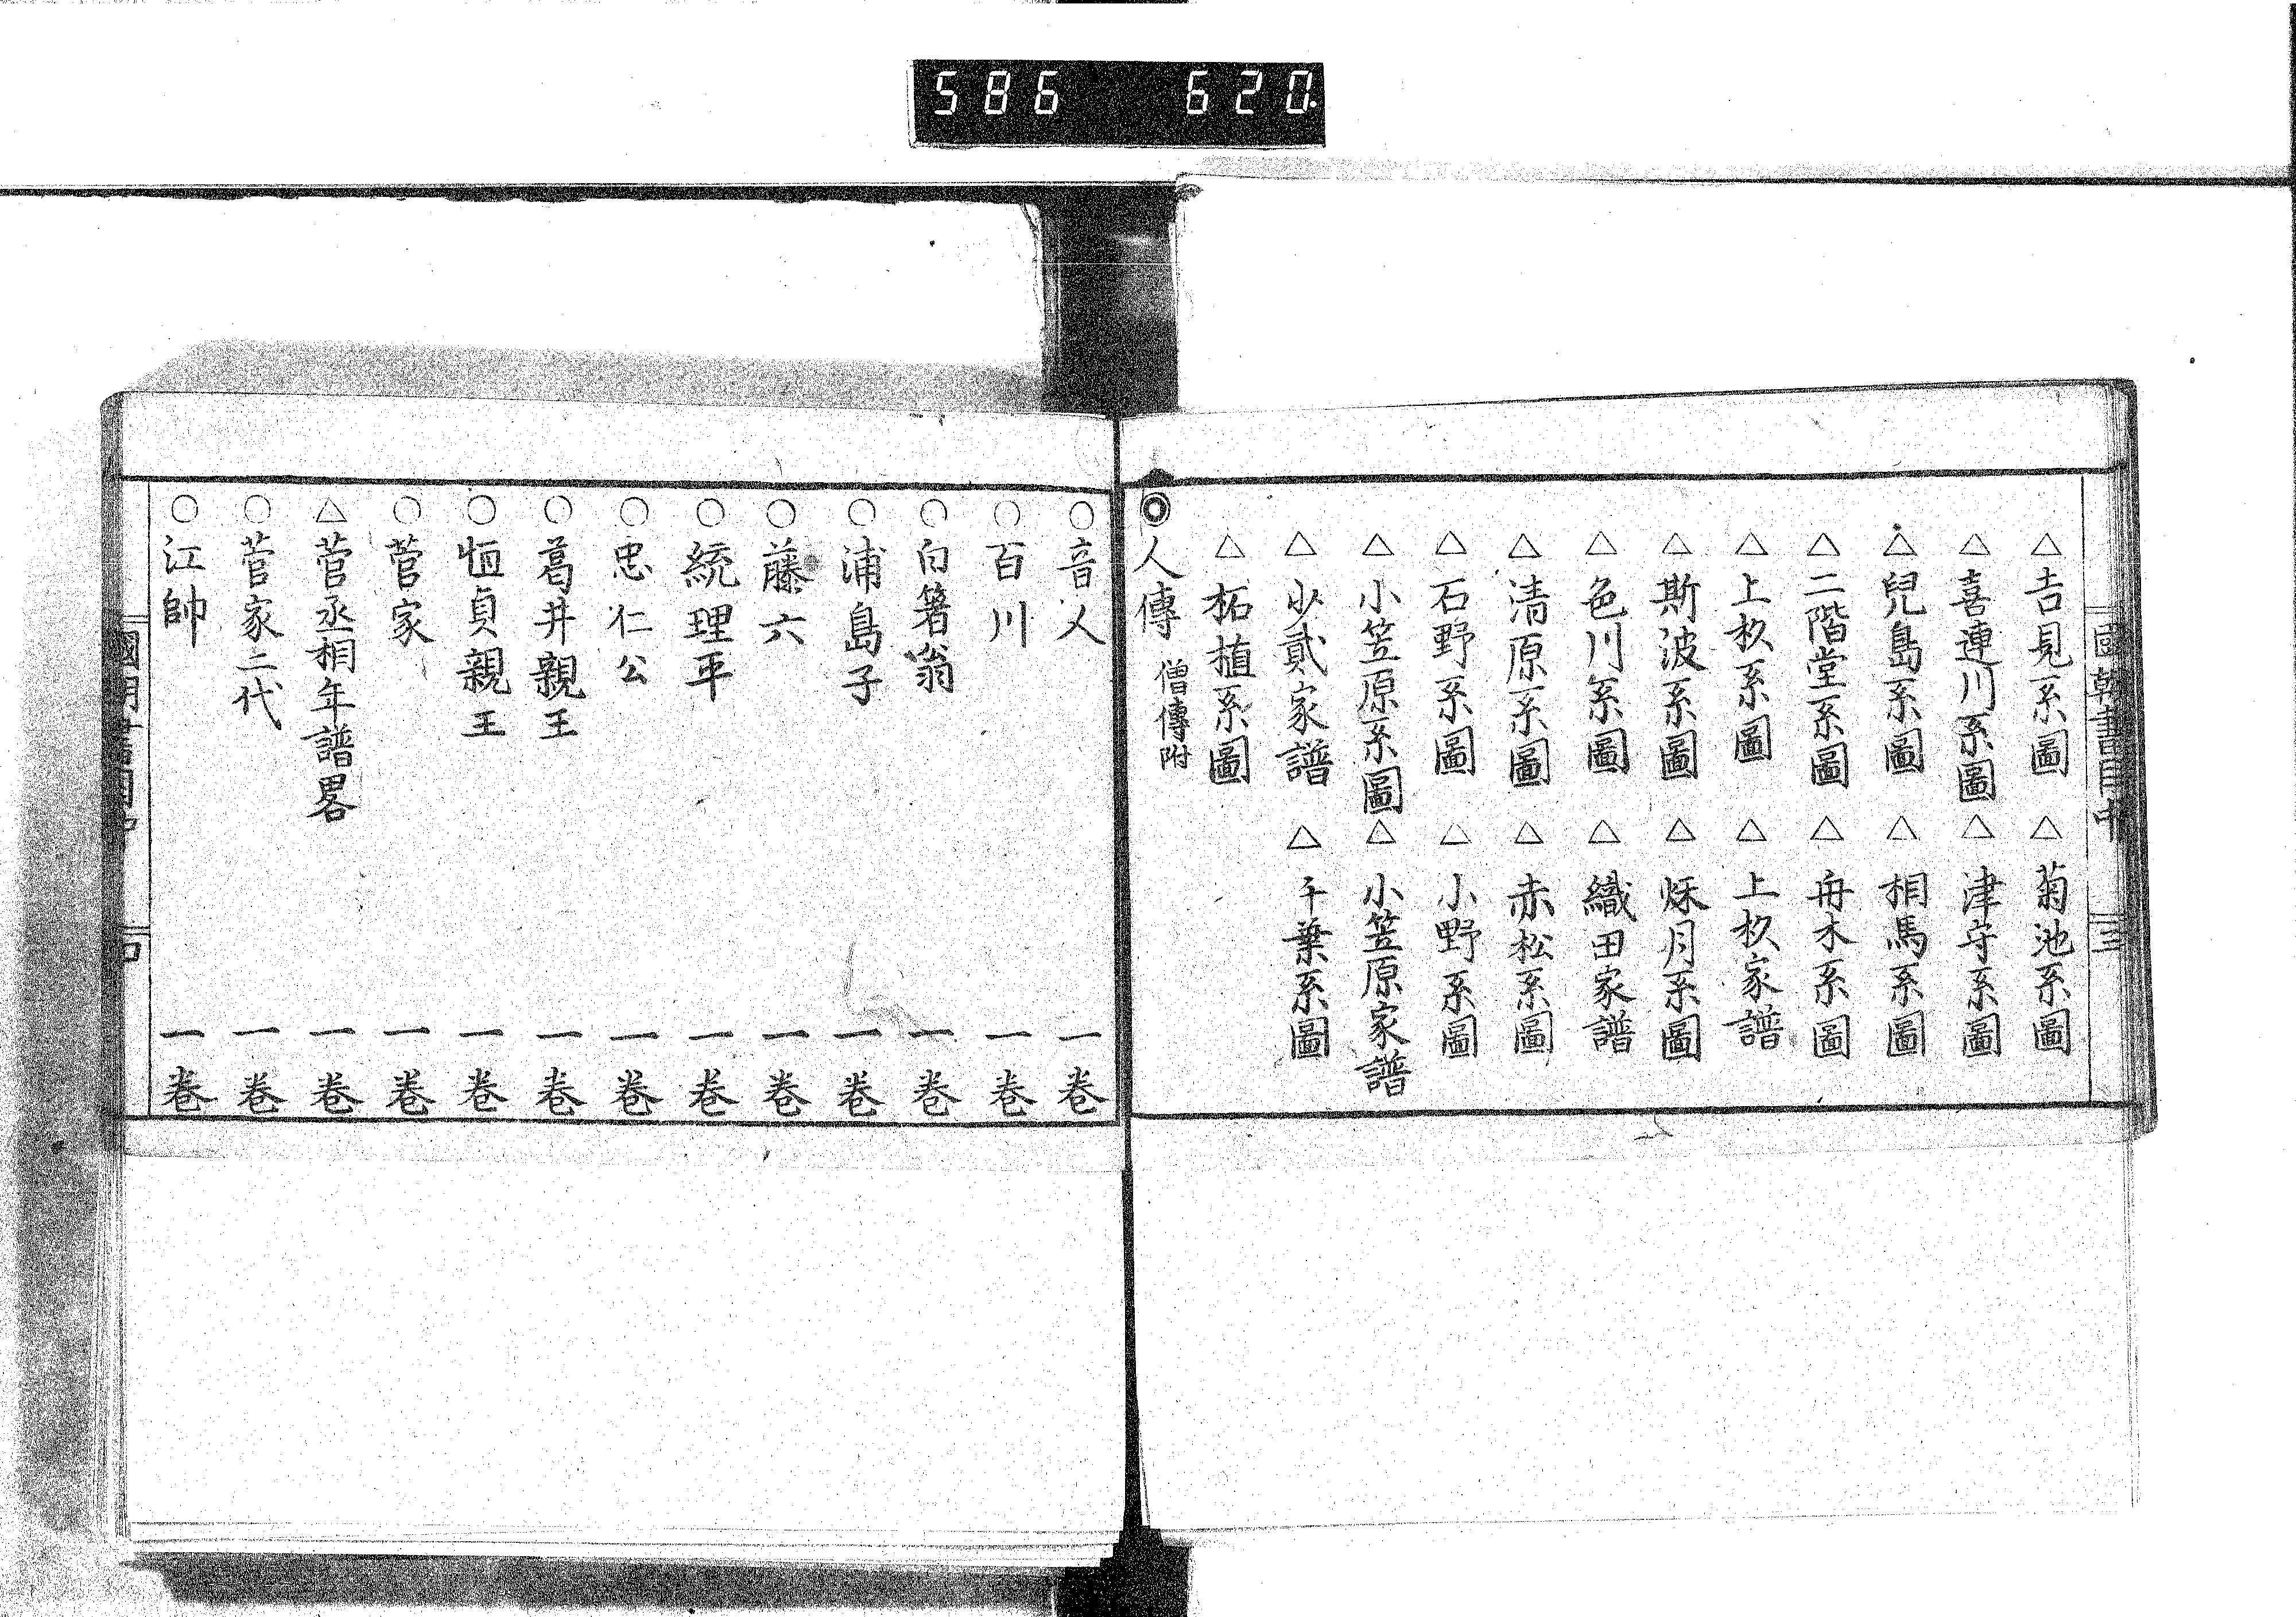 586 620.
國朝書目中 三
△吉見系圖 △菊池系圖
△喜連川系圖 △津守系圖
△兒島系圖 △相馬系圖
△二階堂系圖 △舟木系圖
△上杦系圖 △上杦家譜
△斯波系圖 △秌月系圖
△色川系圖 △織田家譜
△清原系圖 △赤松系圖
△石野系圖 △小野系圖
△小笠原系圖 △小笠原家譜
△少貳家譜 △千葉系圖
△柘植系圖
◎人傳 僧傳附
○音人 一巻
○百川 一巻
○白箸翁 一巻
○浦島子 一巻
○藤六 一巻
○統理平 一巻
○忠仁公 一巻
○葛井親王 一巻
○恒貞親王 一巻
○菅家 一巻
△菅丞相年譜畧 一巻
○菅家二代 一巻
○江帥 一巻